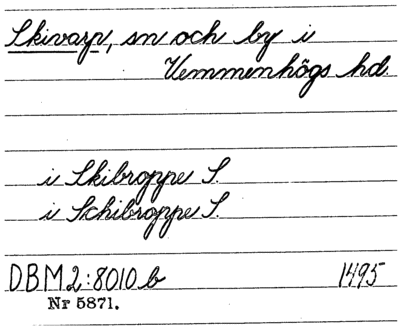 Skivarp, sn och by i
Vemmenhögs hd.
i Skibroppe S.
i Schibroppe S.
DBM 2:8010 b 1495
Nr 5871.